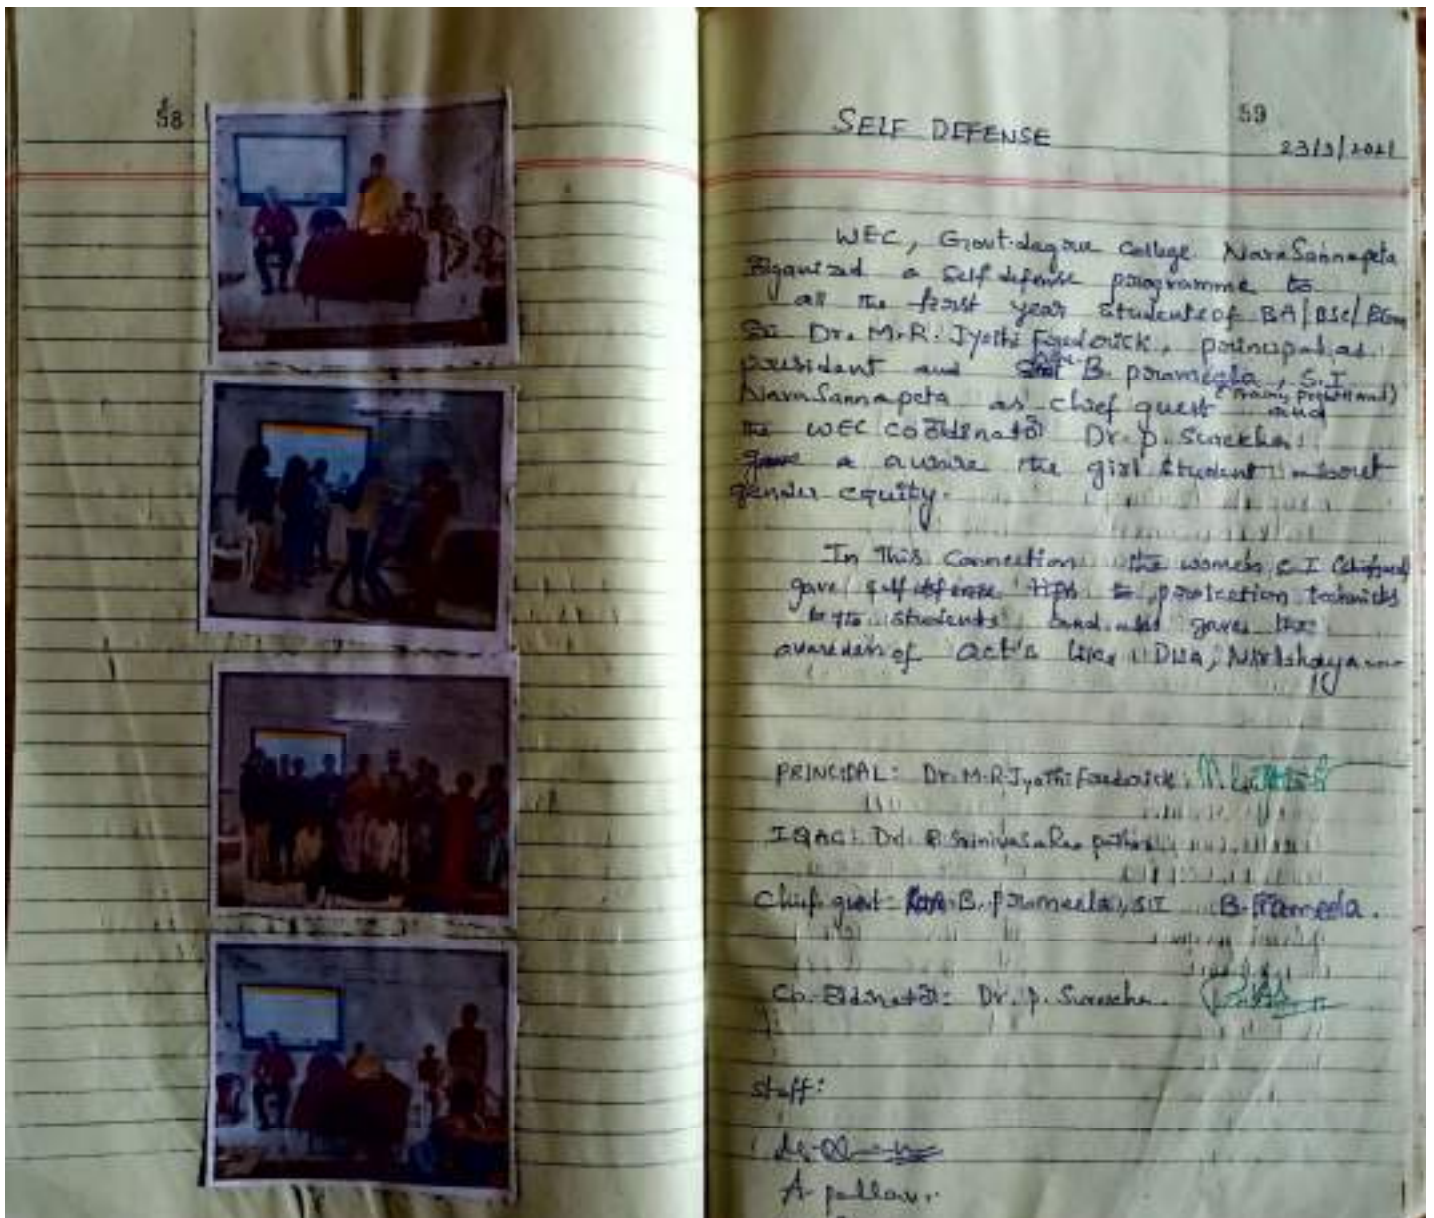 58
59
SELF DEFENSE
23/3/2021
WEC, Govt. degree College NaraSannapeta
Organized a Self defense programme to
all the first year students of BA/BSC/BCom
Dr. M.R. Jyothi Frederick, principal as
president and B. prameela, S.I
NaraSannapeta as chief guest and
the WEC coordinator Dr. P. Surekha
gave a aware the girl student about
gender equity.
In this Connection the women S.I
gave self defense tips to protection
to students and gave the
of act's like Disa, Nirbhaya
PRINCIPAL: Dr. M.R. Jyothi Frederick
IQAC: Dr. Srinivasa
Chief guest: B. prameela, SI B. Prameela.
Co-ordinator: Dr. P. Surekha
Staff:
A. pallavi